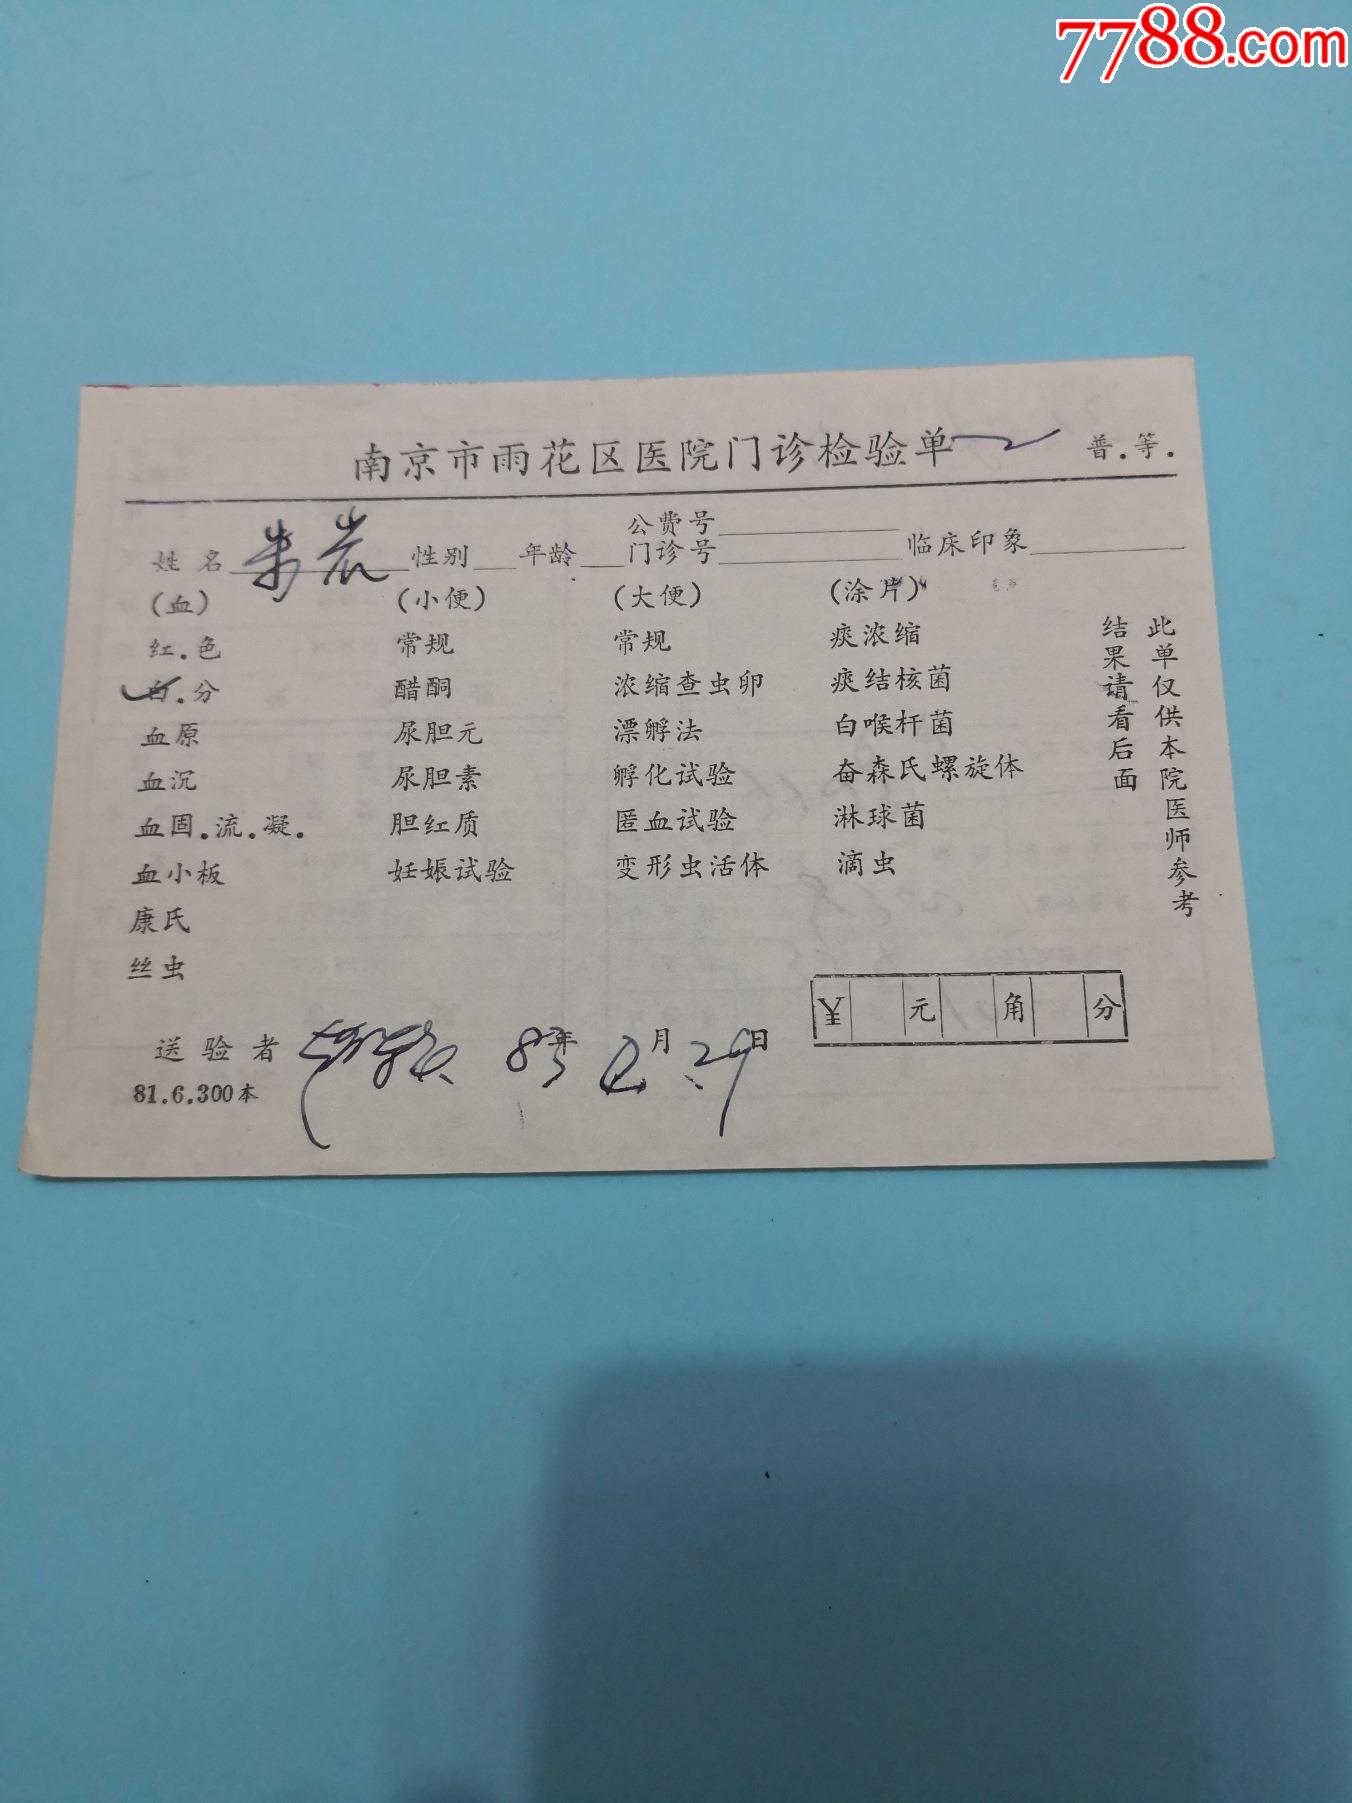 7788.com
南京市雨花区医院门诊检验单 普.等.
公费号
姓名 朱岩 性别 年龄 门诊号 临床印象
(血) (小便) (大便) (涂片)
红.色 常规 常规 痰浓缩
白.分 醋酮 浓缩查虫卵 痰结核菌
血原 尿胆元 漂孵法 白喉杆菌
血沉 尿胆素 孵化试验 奋森氏螺旋体
血固.流.凝. 胆红质 匿血试验 淋球菌
血小板 妊娠试验 变形虫活体 滴虫
康氏
丝虫
此单仅供本院医师参考
结果请看后面
¥ 元 角 分
送验者 83年 月 29日
81.6.300本